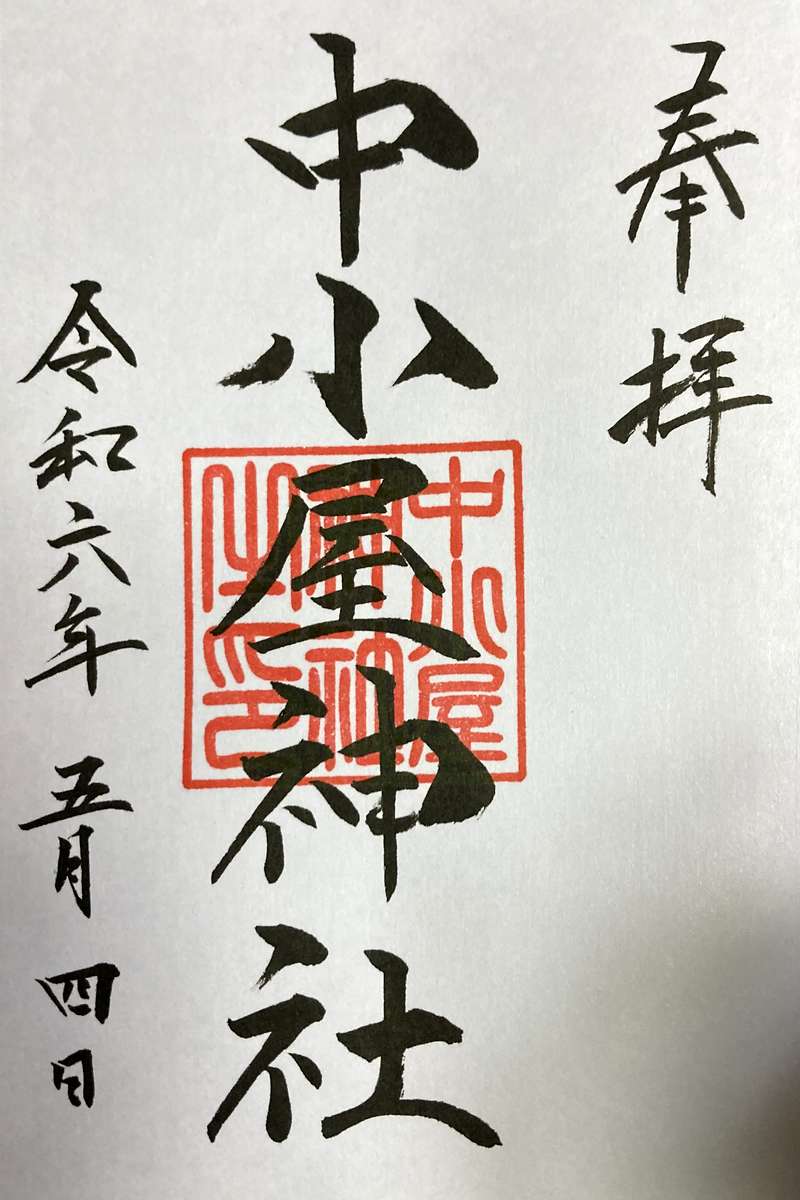 奉拝
中小屋神社
中小屋
神社
之印
令和六年 五月 四日